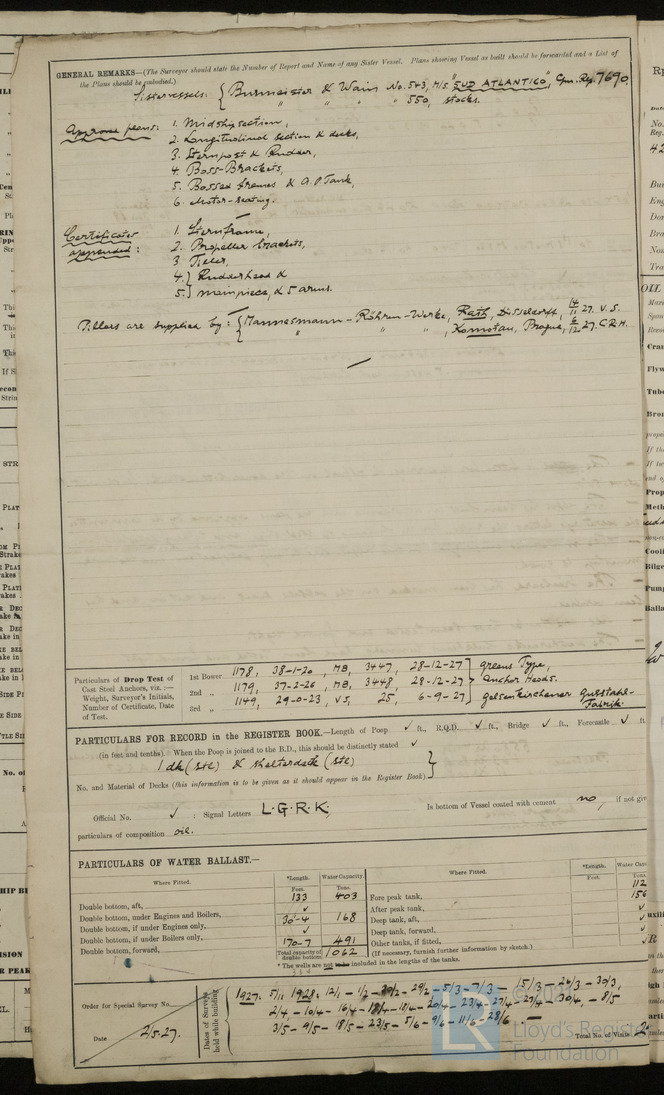 GENERAL REMARKS—(The Surveyor should state the Number of Report and Name of any Sister Vessel. Plans showing Vessel as built should be forwarded and a List of
the Plans should be embodied.)
Sistervessels: { Burmeister & Wain No. 543, M/S "SUD ATLANTICO", Cpn. Rep. 7690.
" " " " 550, stocks.
Approved plans: 1. Midshipsection,
2. Longitudinal section & decks,
3. Sternpost & Rudder,
4. Boss-Brackets,
5. Bossed frames & A.P Tank,
6. Motor-seating.
Certificates appended: 1. Sternframe,
2. Propeller brackets,
3. Tiller,
4.} Rudderhead &
5.} mainpiece, & 5 arms.
Pillars are supplied by: { Mannesmann-Röhren-Werke, Rath, Düsseldorff, 14/11 27. V.S.
" " " , Komotau, Prague, 6/12 27. C.R.H.
Particulars of Drop Test of
Cast Steel Anchors, viz. :—
Weight, Surveyor's Initials,
Number of Certificate, Date
of Test.
1st Bower 1178, 38-1-20, MB, 3447, 28-12-27 } Greens Type,
2nd " 1179, 37-2-26, MB, 3448, 28-12-27 } Anchor Heads.
3rd " 1149, 29-0-23, V.S, 25, 6-9-27 } Gelsenkirchener Gusstahl-
Fabrik.
PARTICULARS FOR RECORD in the REGISTER BOOK.—Length of Poop ✓ ft., R.Q.D. ✓ ft., Bridge ✓ ft., Forecastle ✓ ft
(in feet and tenths). When the Poop is joined to the B.D., this should be distinctly stated ✓
1 dk (stl) & shelterdeck (stl)
No. and Material of Decks (this information is to be given as it should appear in the Register Book)
Official No. ✓ : Signal Letters L.G.R.K. Is bottom of Vessel coated with cement no, if not give
particulars of composition oil.
PARTICULARS OF WATER BALLAST.—
Where Fitted. *Length. Feet. Water Capacity. Tons.
Double bottom, aft, 133 403
Double bottom, under Engines and Boilers, ✓
Double bottom, if under Engines only, 30-4 168
Double bottom, if under Boilers only, ✓
Double bottom, forward, 170-7 491
Total capacity of double bottom 1062
Where Fitted. *Length. Feet. Water Cap Tons
Fore peak tank, 112
After peak tank, 156
Deep tank, aft, ✓
Deep tank, forward, ✓
Other tanks, if fitted, ✓
(If necessary, furnish further information by sketch.)
* The wells are not to be included in the lengths of the tanks.
Order for Special Survey No.
Date 2/5.27.
Dates of Surveys held while building
1927: 5/11 1928: 12/1 - 1/2 - 20/2 - 29/2 - 5/3 - 7/3 - 15/3 - 26/3 - 30/3,
2/4 - 10/4 - 16/4 - 18/4 - 20/4 - 23/4 - 27/4 - 30/4, - 8/5
9/5 - 18/5 - 23/5 - 5/6 - 9/6 - 11/6 - 28/6. —
Total No. of Visits
© 2021
Lloyd's Register
Foundation